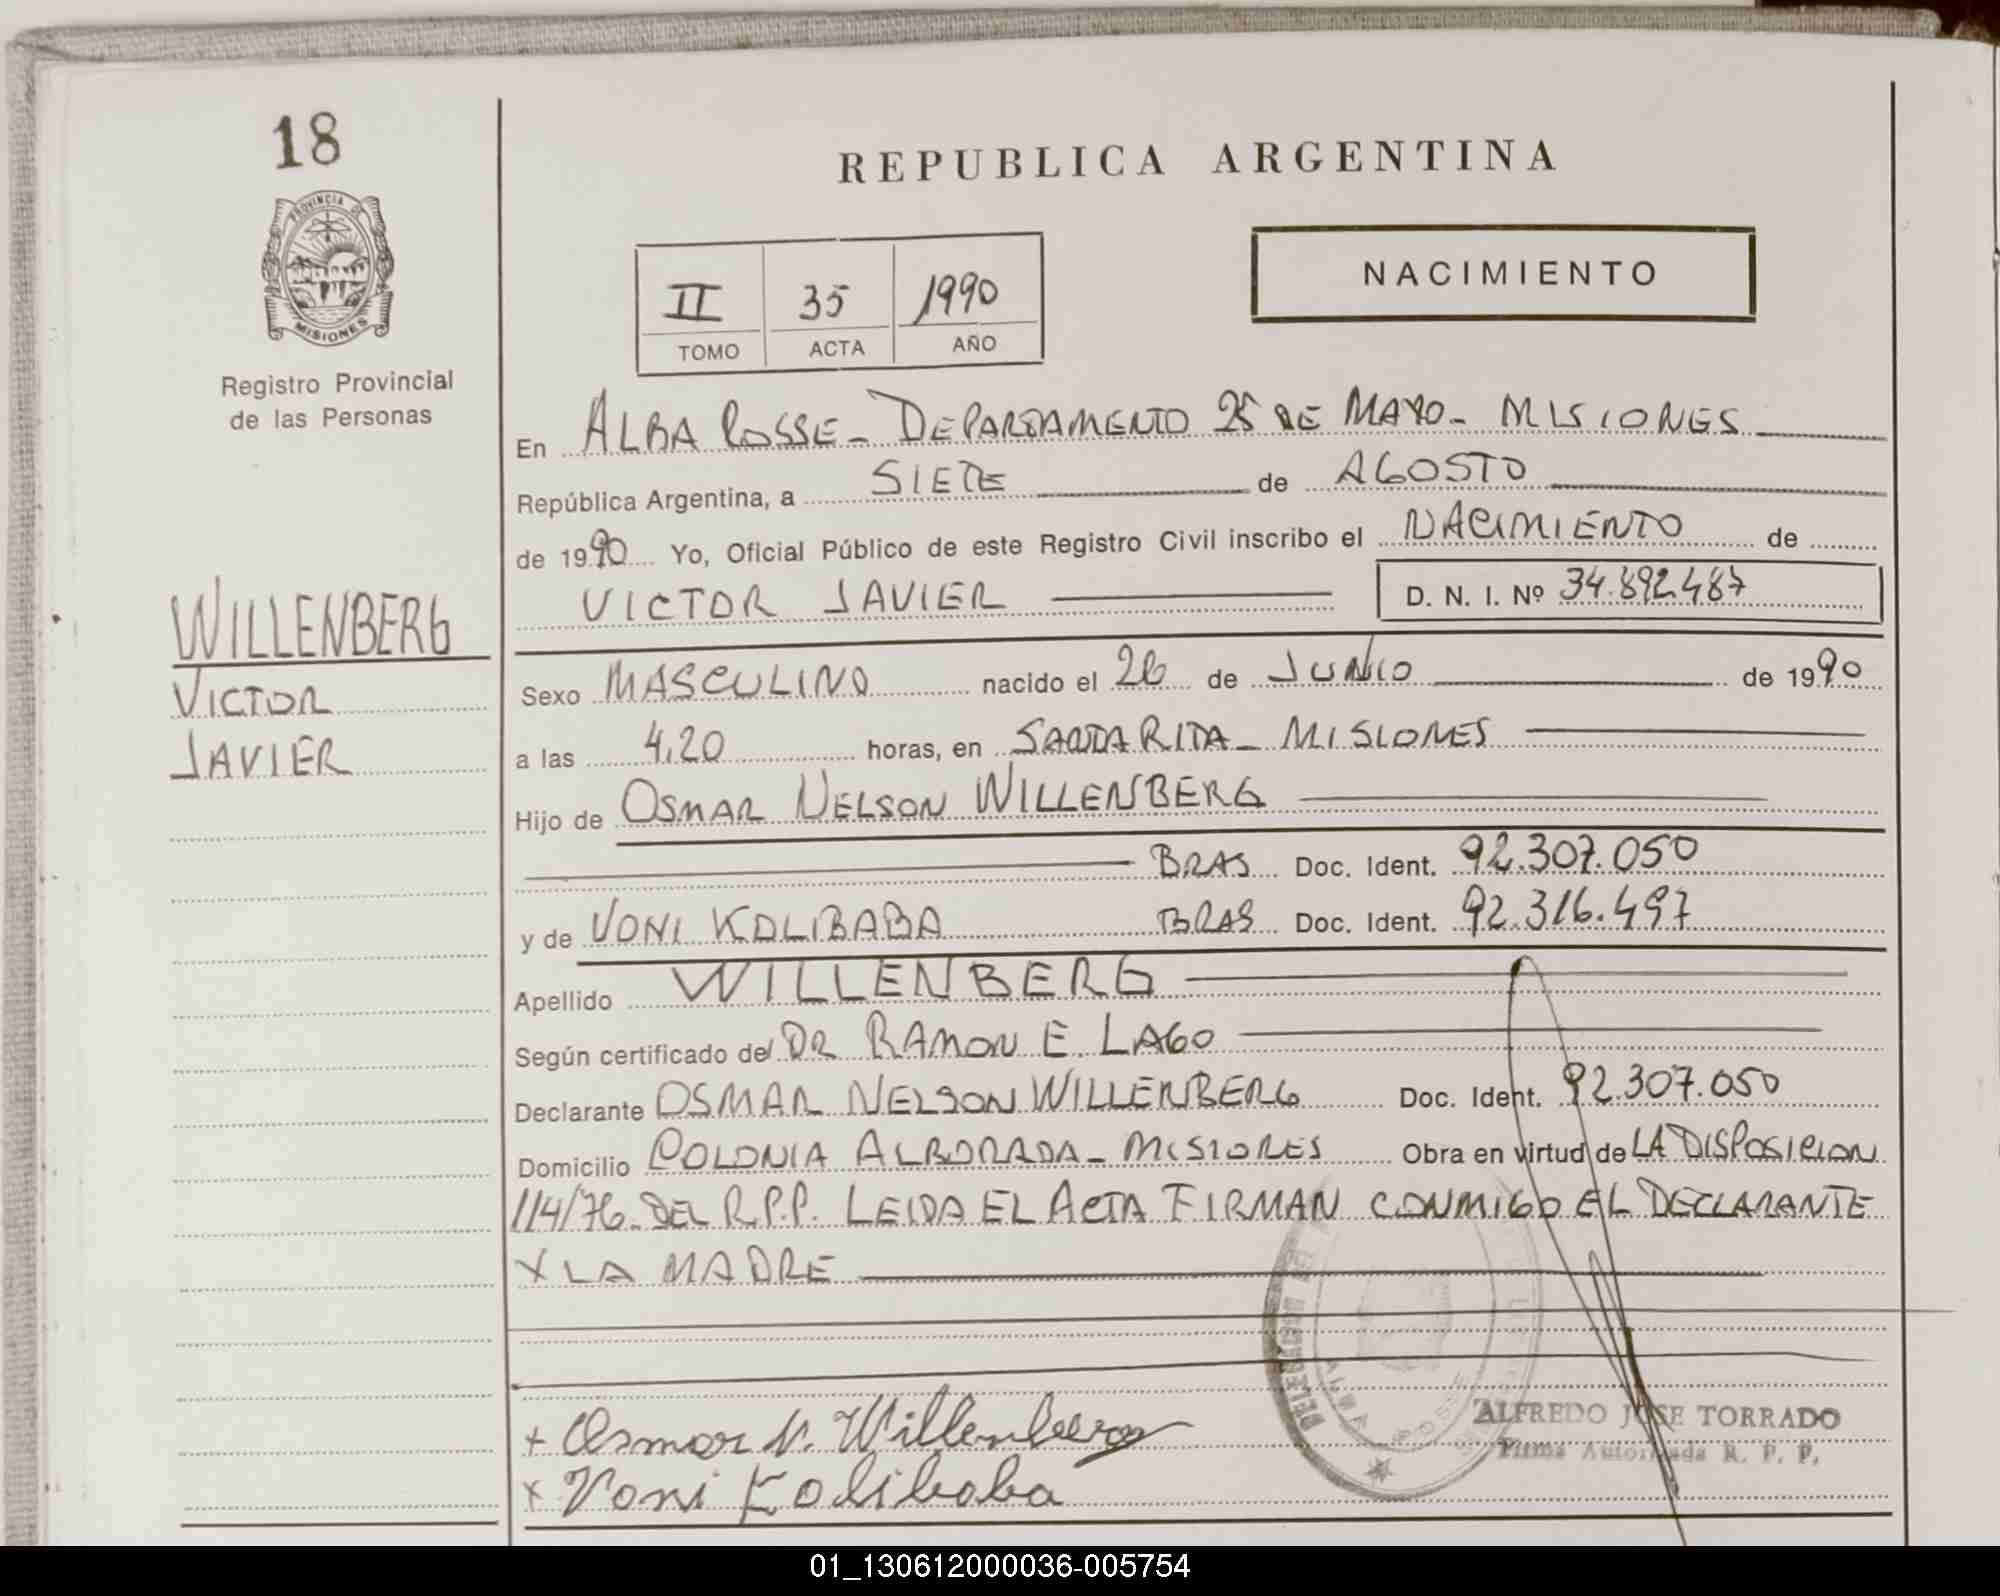 18
PROVINCIA DE
MISIONES
Registro Provincial
de las Personas
WILLENBERG
VICTOR
JAVIER
REPUBLICA ARGENTINA
II 35 1990
TOMO ACTA AÑO
NACIMIENTO
En ALBA POSSE - DEPARTAMENTO 25 DE MAYO - MISIONES
República Argentina, a SIETE de AGOSTO
de 1990 Yo, Oficial Público de este Registro Civil inscribo el NACIMIENTO de
VICTOR JAVIER D. N. I. Nº 34.892.487
Sexo MASCULINO nacido el 26 de JUNIO de 1990
a las 4,20 horas, en SANTA RITA - MISIONES
Hijo de OSMAR NELSON WILLENBERG
BRAS Doc. Ident. 92.307.050
y de VONI KOLIBABA BRAS Doc. Ident. 92.316.497
Apellido WILLENBERG
Según certificado de DR RAMON E. LAGO
Declarante OSMAR NELSON WILLENBERG Doc. Ident. 92.307.050
Domicilio COLONIA ALBORADA - MISIONES Obra en virtud de LA DISPOSICION
114/76 DEL R.P.P. LEIDA EL ACTA FIRMAN CONMIGO EL DECLARANTE
Y LA MADRE
+ Osmar N. Willenberg
x Voni Kolibaba
ALBA POSSE
ALFREDO JOSE TORRADO
Firma Autorizada R. P. P.
01_130612000036-005754